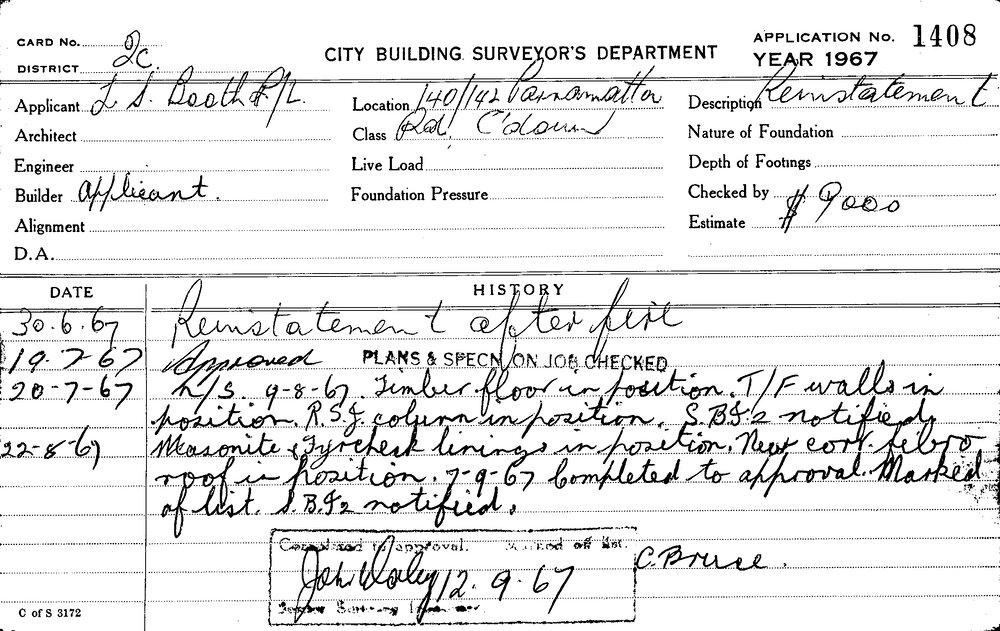 CARD No. 2c
DISTRICT
CITY BUILDING SURVEYOR'S DEPARTMENT
APPLICATION No. 1408
YEAR 1967
Applicant L S. Booth P/L.
Location 140/142 Parramatta
Description Reinstatement
Architect
Class Rd. C'down
Nature of Foundation
Engineer
Live Load
Depth of Footings
Builder Applicant.
Foundation Pressure
Checked by
Alignment
Estimate $ 9000
D.A.
DATE HISTORY
30.6.67 Reinstatement after fire
19.7-67 Approved PLANS & SPECN ON JOB CHECKED
20-7-67 L/S. 9-8-67. Timber floor in position. T/F walls in
position. R.S.J. column in position. S.B.I.2 notified.
22-8-67 Masonite & Fyrchek linings in position. New corr. fibro
roof in position. 7-9-67 Completed to approval. Marked
of list. S.B.I2 notified.
Completed to approval. Marked off list.
John 12.9.67
C. Bruce.
C of S 3172